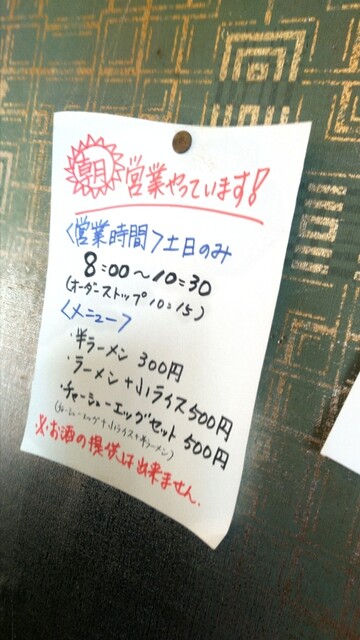 朝 営業やっています!
〈営業時間〉土日のみ
8:00〜10:30
(オーダーストップ10:15)
〈メニュー〉
・半ラーメン 300円
・ラーメン+小ライス500円
・チャーシューエッグセット 500円
(チャーシューエッグ+小ライス+半ラーメン)
※お酒の提供は出来ません.